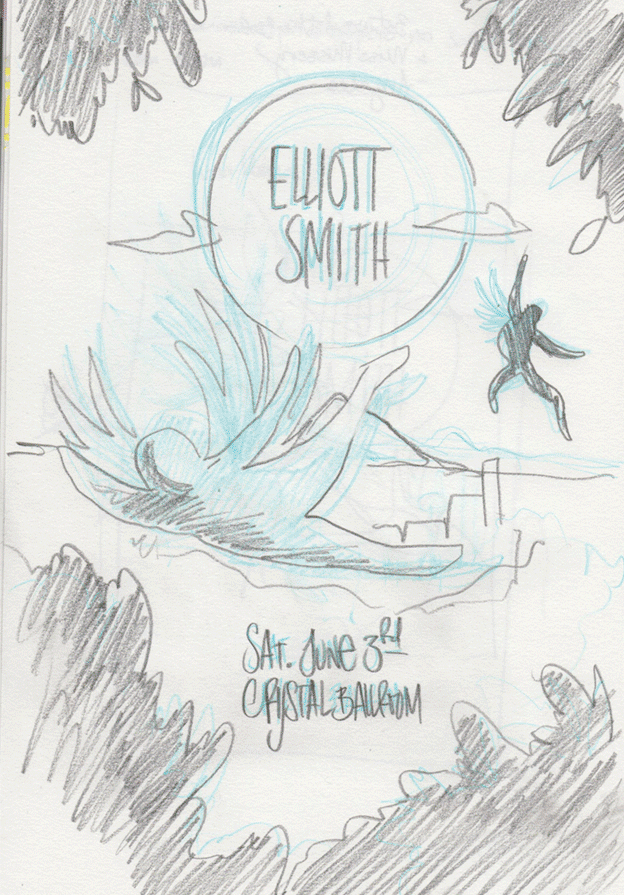 ELLIOTT
SMITH
SAT. JUNE 3RD
CRYSTAL BALLROOM